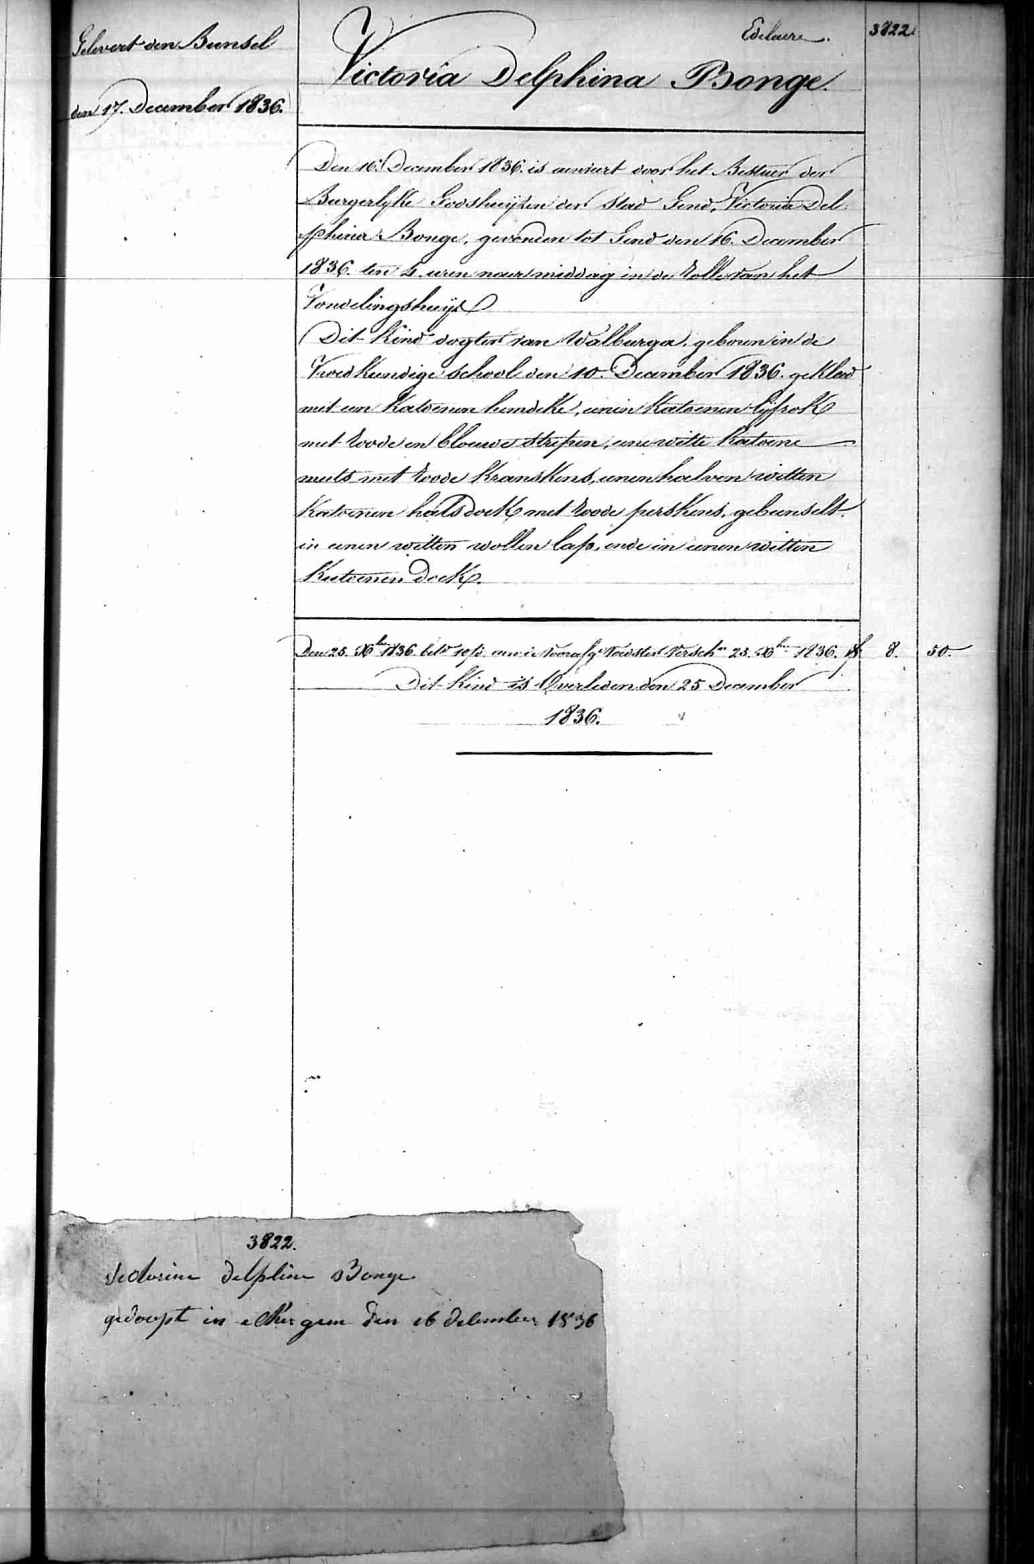 Gelevert den Bunsel
den 17. December 1836.
Edelaere.
3822
Victoria Delphina Bonge.
Den 16. December 1836. is aenveert door het Bestuer der
Burgerlyke Godshuijzen der stad Gend, Victoria Del-
phina Bonge, gevonden tot Gend den 16. December
1836. ten 4. uren naer middag in de Rolle van het
Vondelingshuijs
Dit kind dogter van Walburga, geboren in de
Vroedkundige school den 10. December 1836. gekleed
met een katoenen hemdeke, eenen katoenen lijfrok
met roode en blouwe strepen, eene witte katoene
muts met roode kranskens, eenen halven witten
katoenen halsdoek met roode perskens, gebunselt
in eenen witten wollen lap, ende in eenen witten
katoenen doek.
Den 25. Xber 1836. bet. aen de Voedster Versch. 25. Xber 1836. 8. 50.
Dit kind is Overleden den 25 December
1836.
3822.
Victorine delphine Bonge
gedoopt in eckergem den 16 december 1836